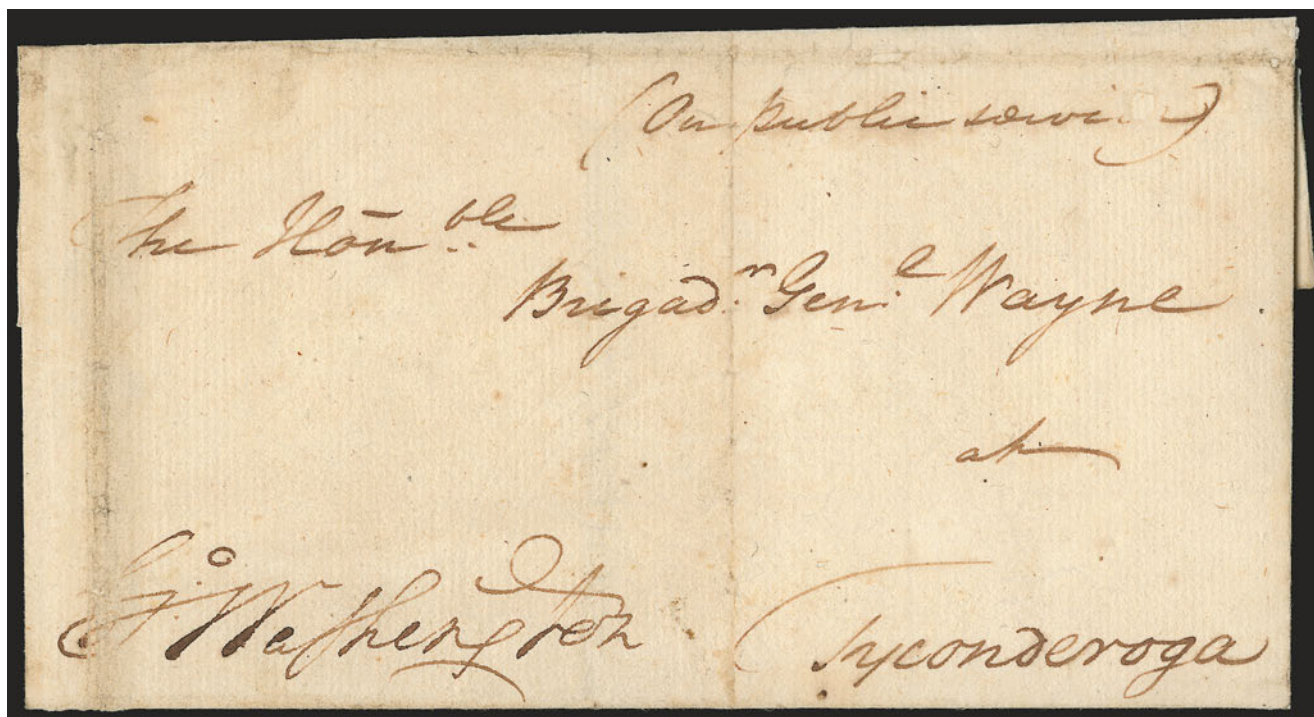 (On public servi )
The Honble
Brigadr Genl Wayne
at
Go Washington
Tyconderoga